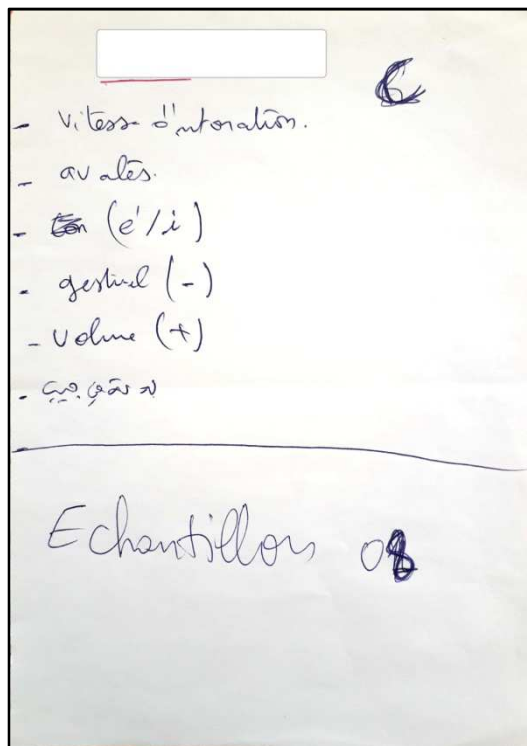 - vitesse d'intonation.
- avalés.
- (é/i)
- gestuel (-)
- volume (+)
-
Echantillon 08